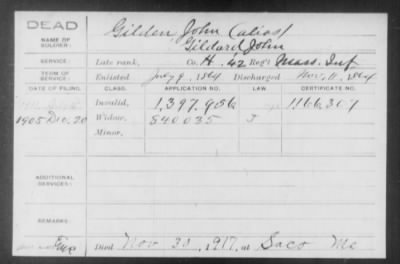 DEAD
NAME OF SOLDIER:
Gilden, John (alias)
Gildard John
SERVICE:
Late rank, Co. H. 42 Reg't Mass. Inf
TERM OF SERVICE:
Enlisted July 9, 1864 Discharged Nov. 11, 1864
DATE OF FILING. CLASS. APPLICATION NO. LAW. CERTIFICATE NO.
Invalid, 1,397,956 1166,307
1905 Dec. 20 Widow, 840035 J
Minor,
ADDITIONAL SERVICES:
REMARKS:
Died Nov 30, 1917, at Saco Me